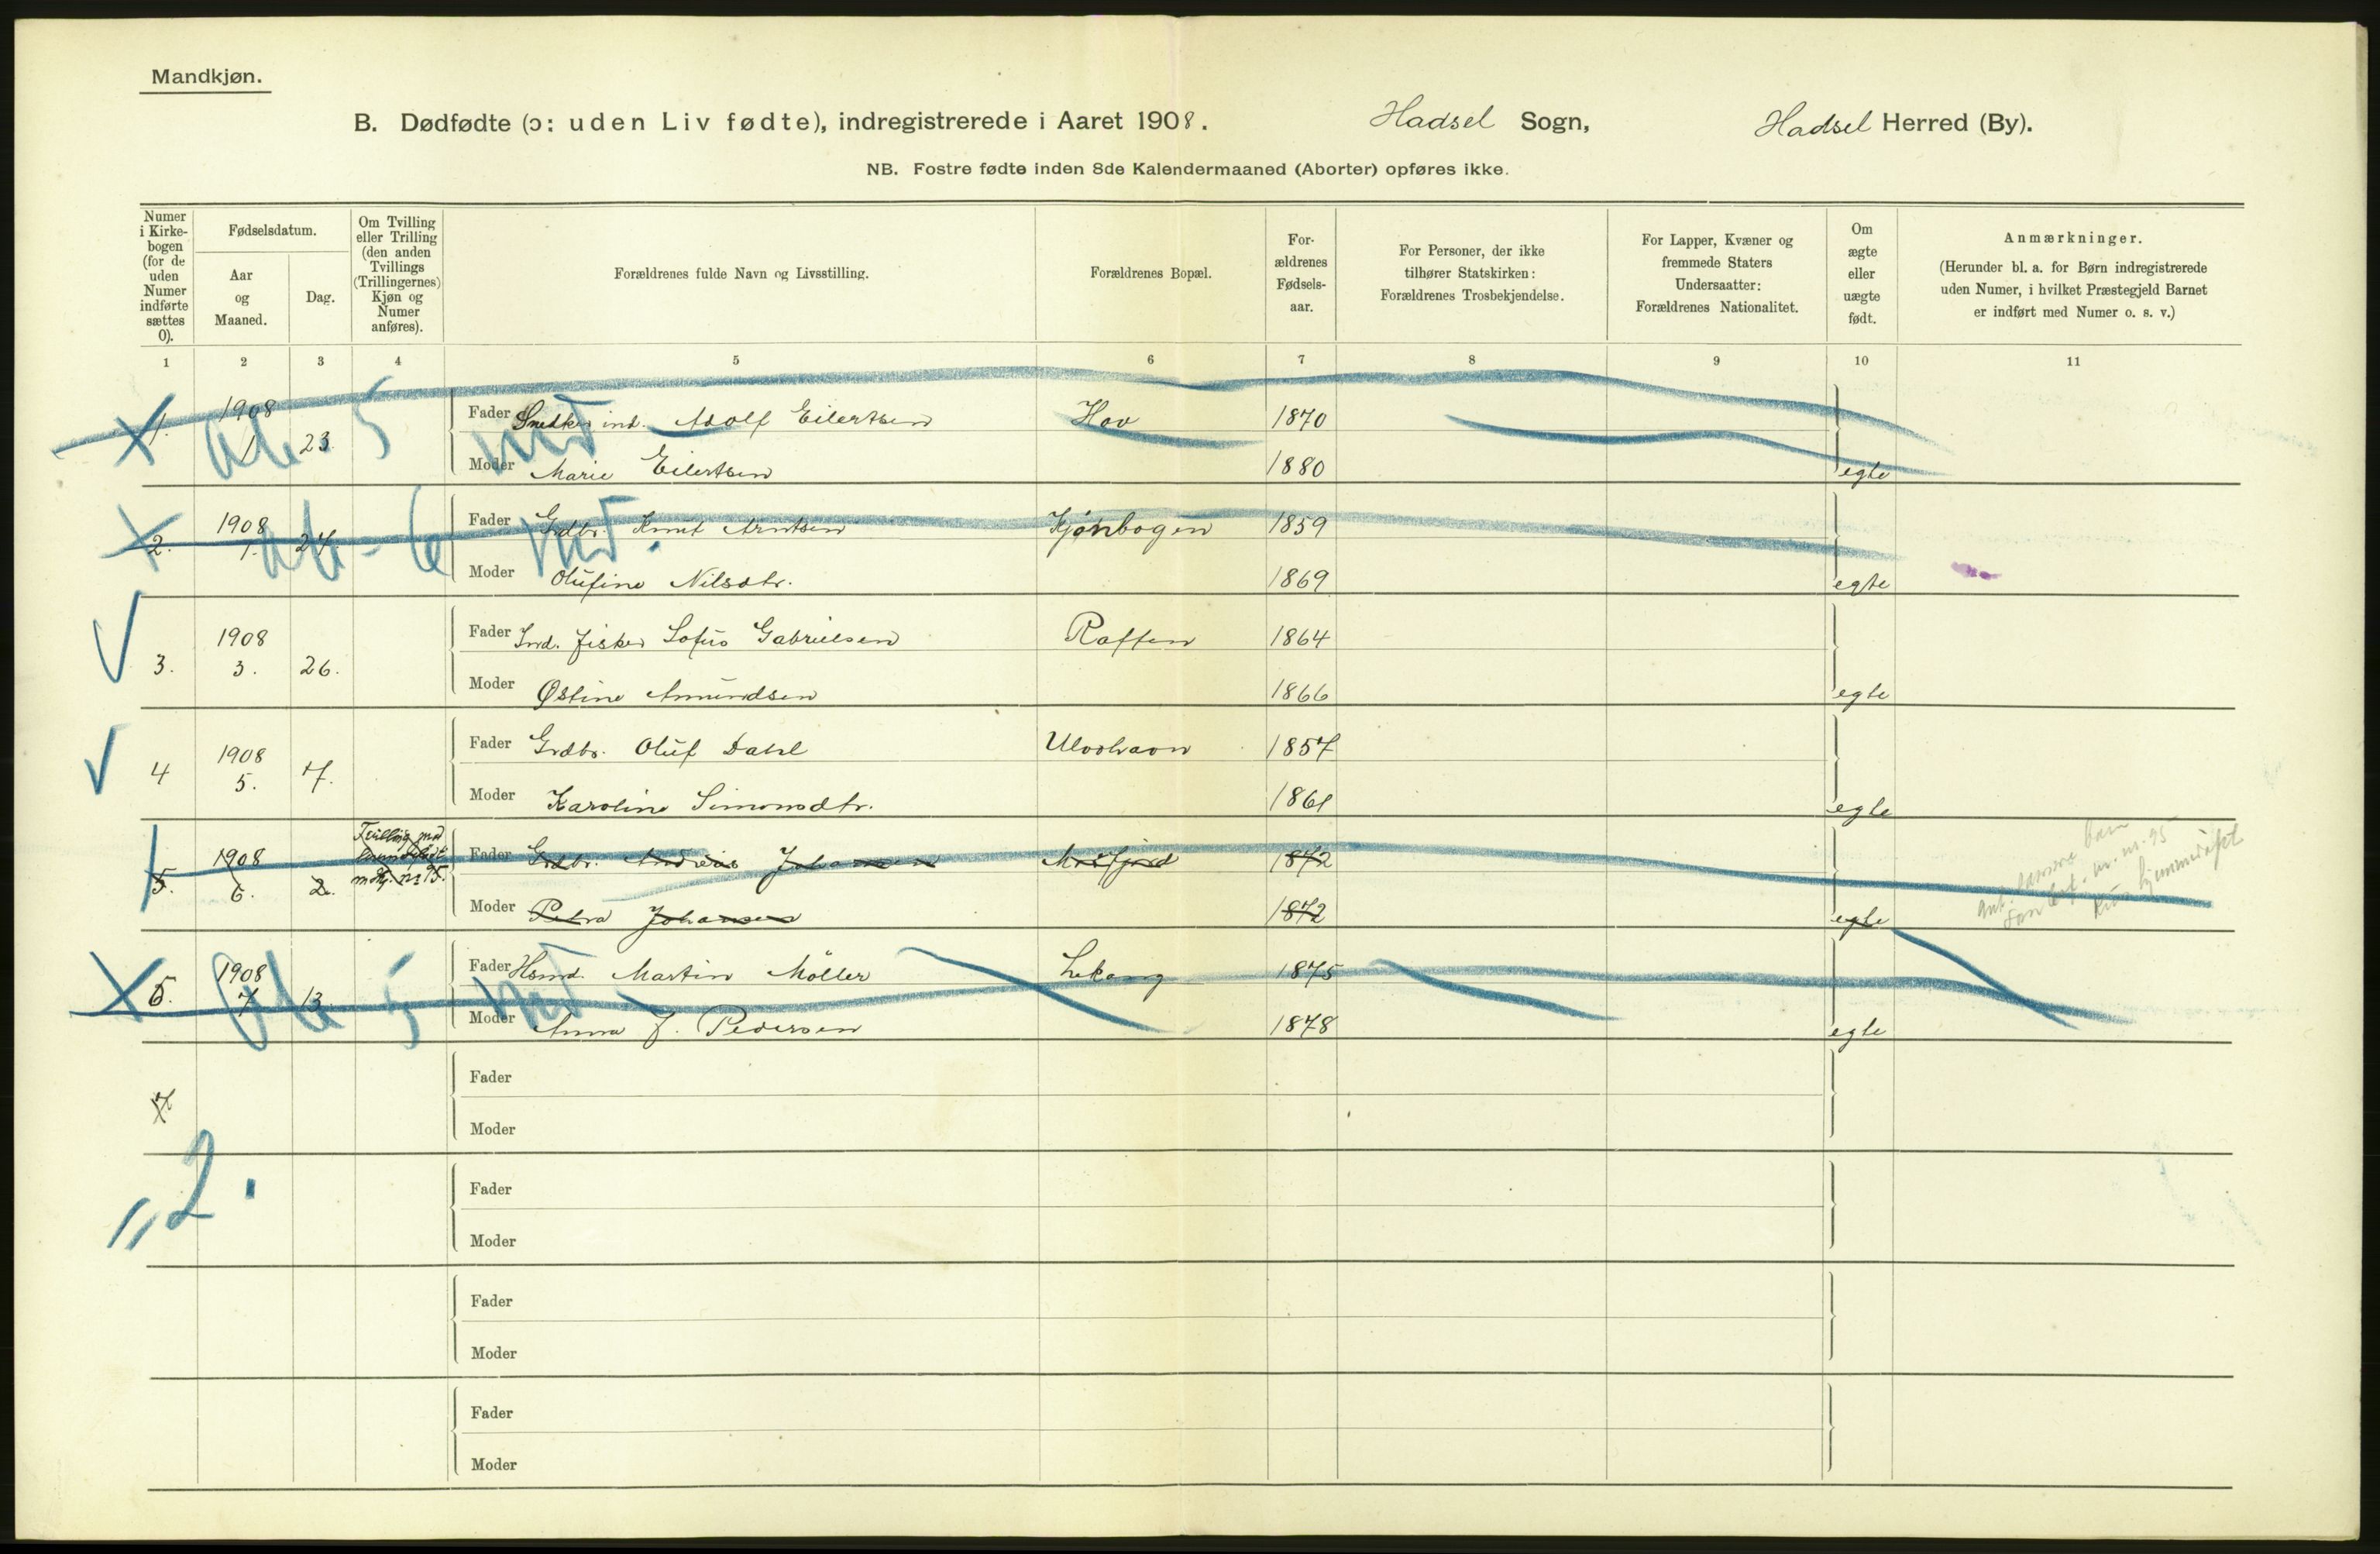 Mandkjøn.
B. Dødfødte (ɔ: uden Liv fødte), indregistrerede i Aaret 1908. Hadsel Sogn, Hadsel Herred (By).
NB. Fostre fødte inden 8de Kalendermaaned (Aborter) opføres ikke.
Numer
i Kirke-
bogen
(for de
uden
Numer
indførte
sættes
0).
Fødselsdatum.
Aar
og
Maaned.
Dag.
Om Tvilling
eller Trilling
(den anden
Tvillings
(Trillingernes)
Kjøn og
Numer
anføres).
Forældrenes fulde Navn og Livsstilling.
Forældrenes Bopæl.
For-
ældrenes
Fødsels-
aar.
For Personer, der ikke
tilhører Statskirken:
Forældrenes Trosbekjendelse.
For Lapper, Kvæner og
fremmede Staters
Undersaatter:
Forældrenes Nationalitet.
Om
ægte
eller
uægte
født.
Anmærkninger.
(Herunder bl. a. for Børn indregistrerede
uden Numer, i hvilket Præstegjeld Barnet
er indført med Numer o. s. v.)
1 2 3 4 5 6 7 8 9 10 11
1908
Fader Snedker ind. Adolf Eilertsen Hov 1870
1. 1 23.
ab 5 md
Moder Marie Eilertsen 1880 egte
1908
Fader Grdbr. Knut Arntsen Kjønbogen 1859
2. 1. 27.
ab - 6 md.
Moder Olufine Nilsdtr. 1869 egte
1908
Fader Ind. fisker Sofus Gabrielsen Raften 1864
3. 3. 26.
Moder Østine Amundsen 1866 egte
1908
Fader Grdbr. Oluf Dahl Ulvohavn 1857
4 5. 7.
Moder Karoline Simonsdtr. 1861 egte
Tvilling med
levendefødt
m.kj. nr 95.
1908
Fader Grdbr. Andreas Johansen 1872
5. 6. 2.
Moder Petra Johansen 1872 egte
1908
Fader Hsmd. Martin Möller Lekang 1875
6. 7 13
ab 5 md
Moder Anna J. Pedersen 1878 egte
7
Fader
Moder
„2.
Fader
Moder
Fader
Moder
Fader
Moder